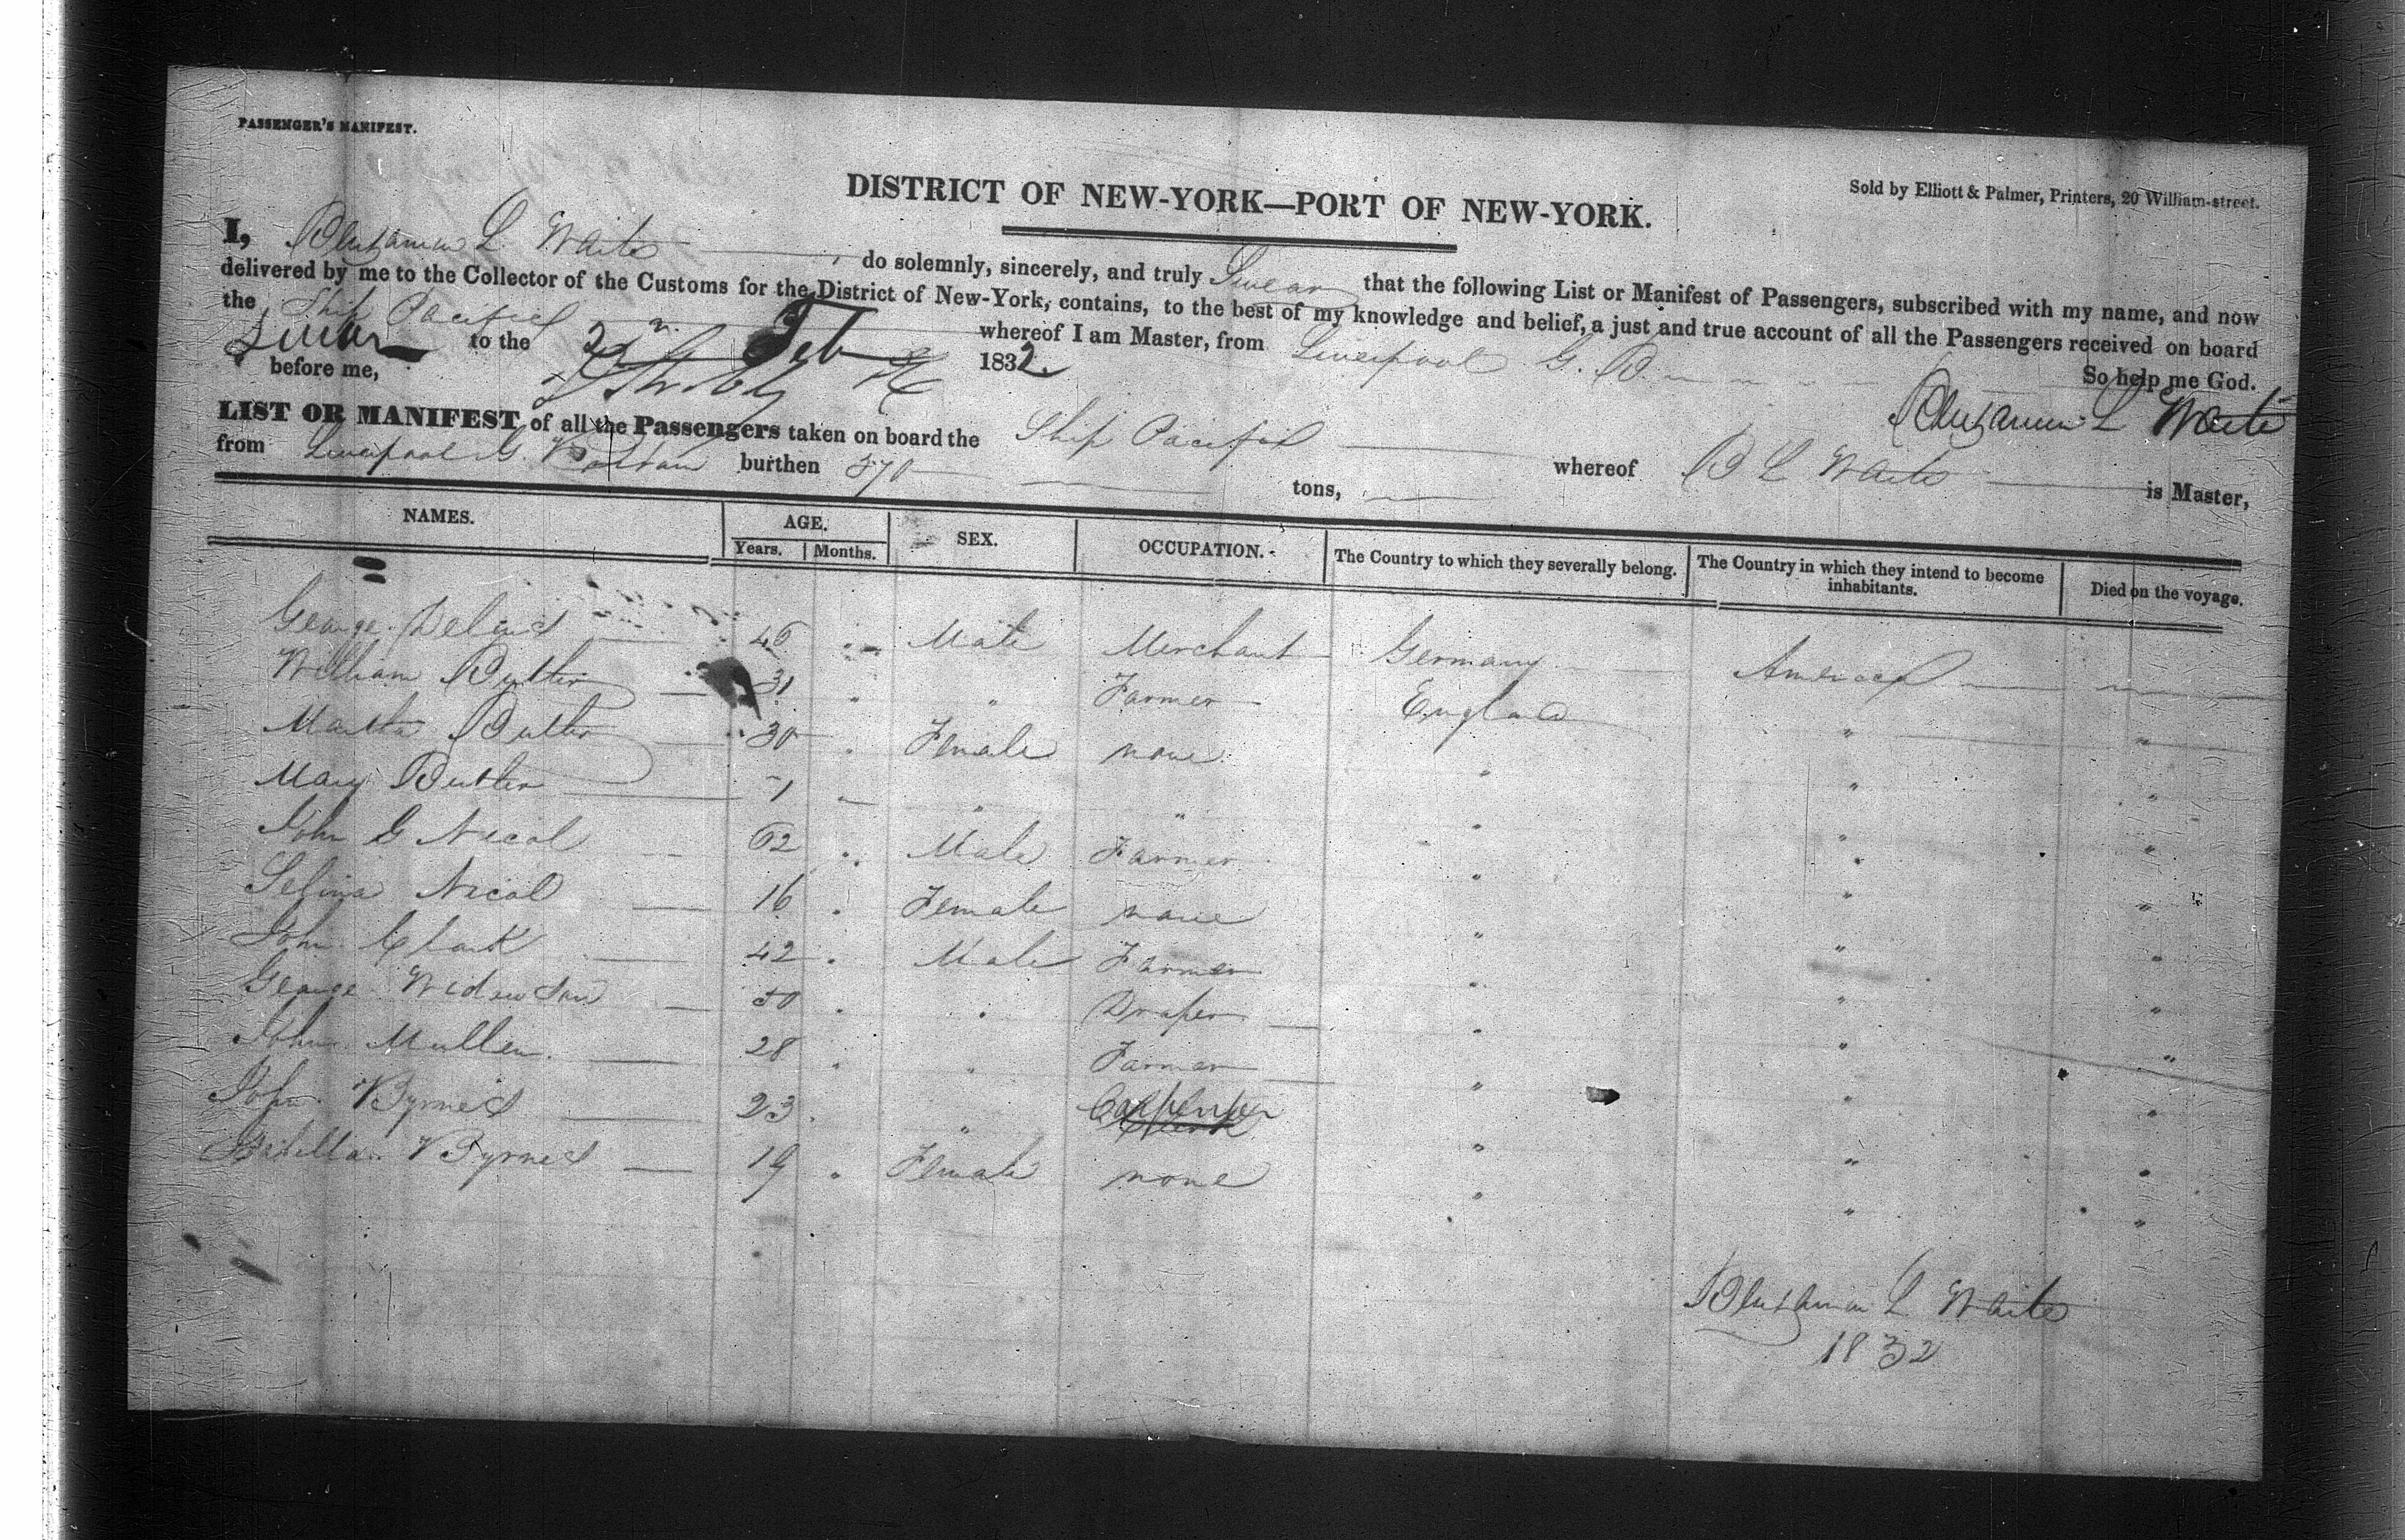 PASSENGER'S MANIFEST.
DISTRICT OF NEW-YORK—PORT OF NEW-YORK.
Sold by Elliott & Palmer, Printers, 20 William-street.
I, Benjamin L Waite, do solemnly, sincerely, and truly Swear that the following List or Manifest of Passengers, subscribed with my name, and now
delivered by me to the Collector of the Customs for the District of New-York, contains, to the best of my knowledge and belief, a just and true account of all the Passengers received on board
the Ship Pacific whereof I am Master, from Liverpool G. B.
to the Feb 1832. So help me God.
before me, Benjamin L Waite
LIST OR MANIFEST of all the Passengers taken on board the Ship Pacific whereof B L Waite is Master,
from Liverpool G. Britain burthen 370 tons,
NAMES. AGE. SEX. OCCUPATION. The Country to which they severally belong. The Country in which they intend to become inhabitants. Died on the voyage.
Years. Months.
George Delius 46 " Male Merchant Germany America
William Butler 31 " " Farmer England " "
Martha Butler 30 " Female none " " "
Mary Butler 7 " " " " "
John G Nicol 62 " Male Farmer " " "
Selina Nicol 16 " Female none " " "
John Clark 42 " Male Farmer " " "
George Widowson 50 " " Draper " " "
John Mullen 28 " " Farmer " " "
John Byrnes 23 " " Carpenter " " "
Isabella Byrnes 19 " Female none " " "
Benjamin L Waite
1832